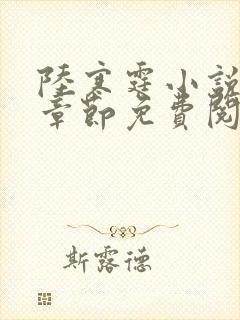 陸寒霆小說
章節免費閱
斯露德